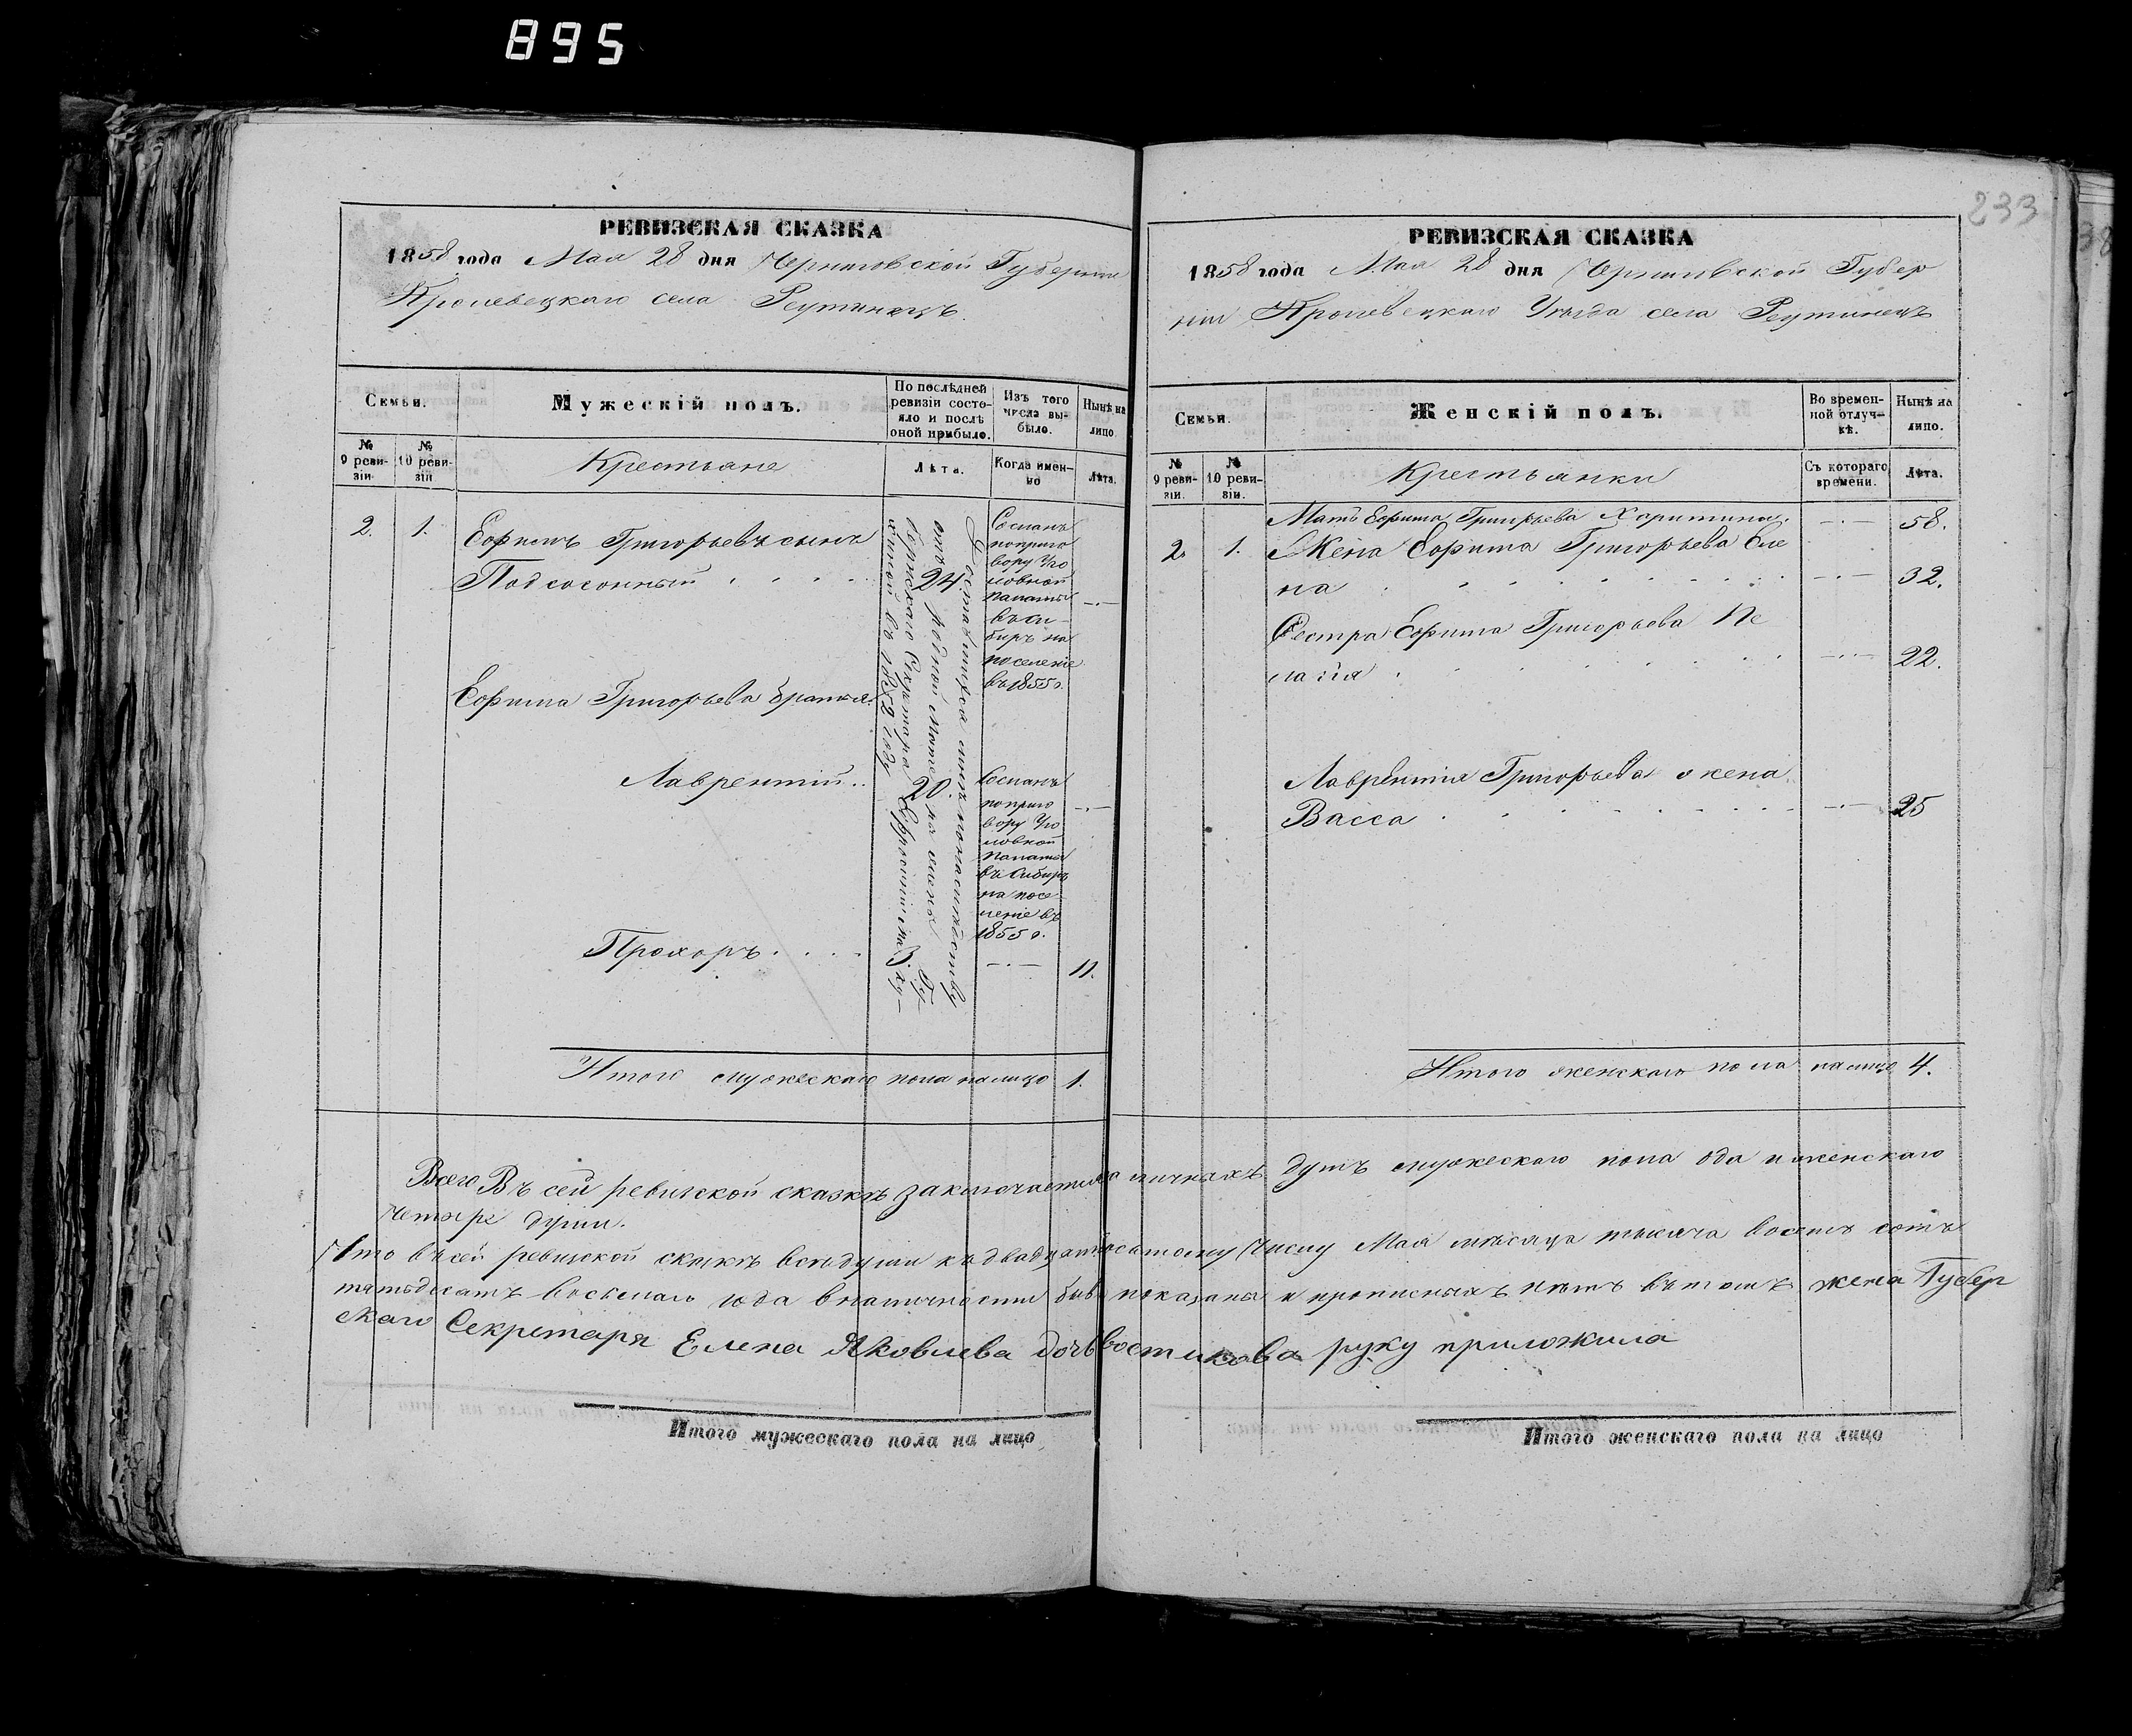 895
РЕВИЗСКАЯ СКАЗКА
1858 года Мая 28 дня Черниговской Губернии
Кролевецкаго села Реутинецъ.
Семьи.
Мужескій полъ.
По послѣдней ревизіи состояло и послѣ оной прибыло.
Изъ того числа выбыло.
Нынѣ на лицо.
№ 9 ревизіи
№ 10 ревизіи
Крестьяне
Лѣта.
Когда именно
Лѣта.
2. 1. Ефимъ Григорьевъ сынъ
Подсосонный 24
Сосланъ
по приго
вору Уго
ловной
палаты
въ Си-
биръ на
поселеніе
въ 1855 г.
Ефима Григорьева братья.
Лаврентій.. 20.
Сосланъ
по приго
вору Уго
ловной
палаты
въ Сибиръ
на посе
леніе въ
1855 г.
Прохоръ 3. 11.
Итого мужескаго пола налицо 1.
233
РЕВИЗСКАЯ СКАЗКА
1858 года Мая 28 дня Черниговской Губер
ніи Кролевецкаго Уѣзда села Реутинецъ
Семьи.
Женскій полъ.
Во временной отлучкѣ.
Нынѣ на лицо.
№ 9 ревизіи.
№ 10 ревизіи.
Крестьянки
Съ котораго времени.
Лѣта.
Мать Ефима Григорьева Харитина. 58.
2. 1. Жена Ефима Григорьева Еле
на 32.
Сестра Ефима Григорьева Пе
лагія 22.
Лаврентія Григорьева жена
Васса 25
Итого женскаго пола налицо 4.
Всего Въ сей ревизской сказкѣ заключается личныхъ душъ мужескаго пола одна и женскаго
четыре души.
Что въ сей ревизской скаскѣ всѣ души къ двадцать осьтому числу Мая мѣсяца тысяча восемъ сотъ
пятьдесятъ восьмаго года в наличности бывъ показаны и прописныхъ нѣтъ въ томъ жена Губер
скаго Секретаря Елена Яковлева дочь руку приложила
Итого мужескаго пола на лицо
Итого женскаго пола на лицо